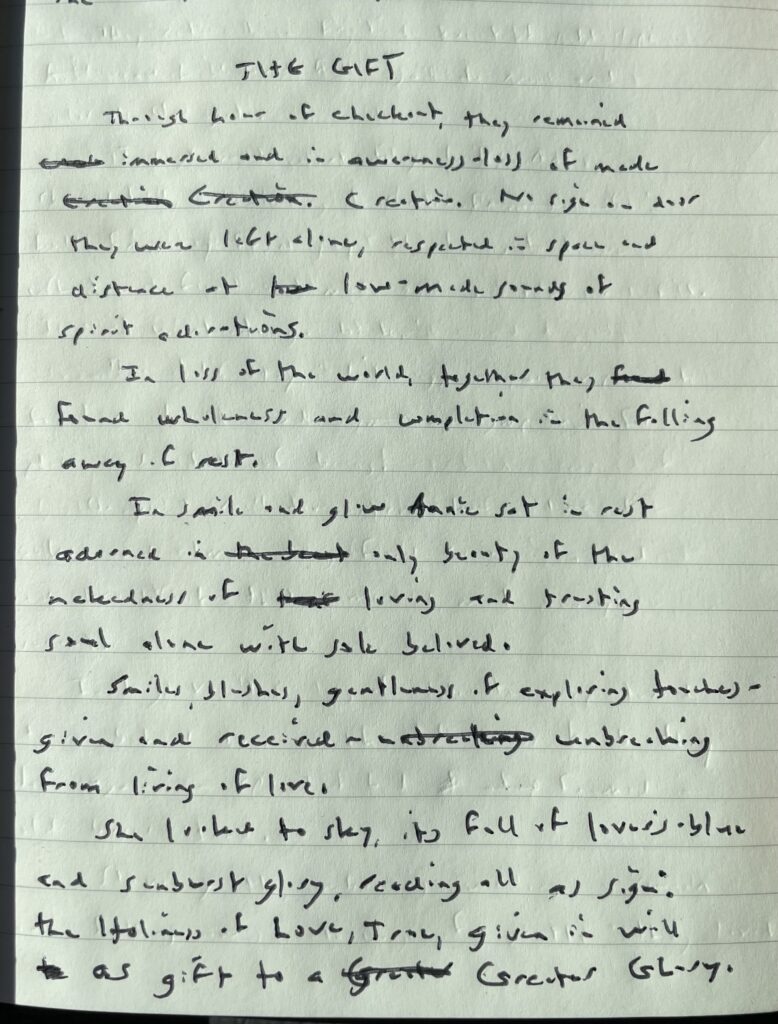 THE GIFT
Through hour of checkout, they remained
immersed and in awareness-loss of made
Creation Creation. Creation. No sign on door
they were left alone, respected in space and
distance at love-made sounds of
spirit adorations.
In loss of the world, together they found
found wholeness and completion in the falling
away of rest.
In smile and glow Annie sat in rest
adorned in the beaut only beauty of the
nakedness of loving and trusting
soul alone with sole beloved.
Smiles, blushes, gentleness of exploring touches-
given and received - unbreaking unbreaking
from living of love.
She looked to sky, its full of lover's-blue
and sunburst glory, reading all as sign:
the Holiness of Love, True, given in will
to as gift to a Greater Greater Glory.